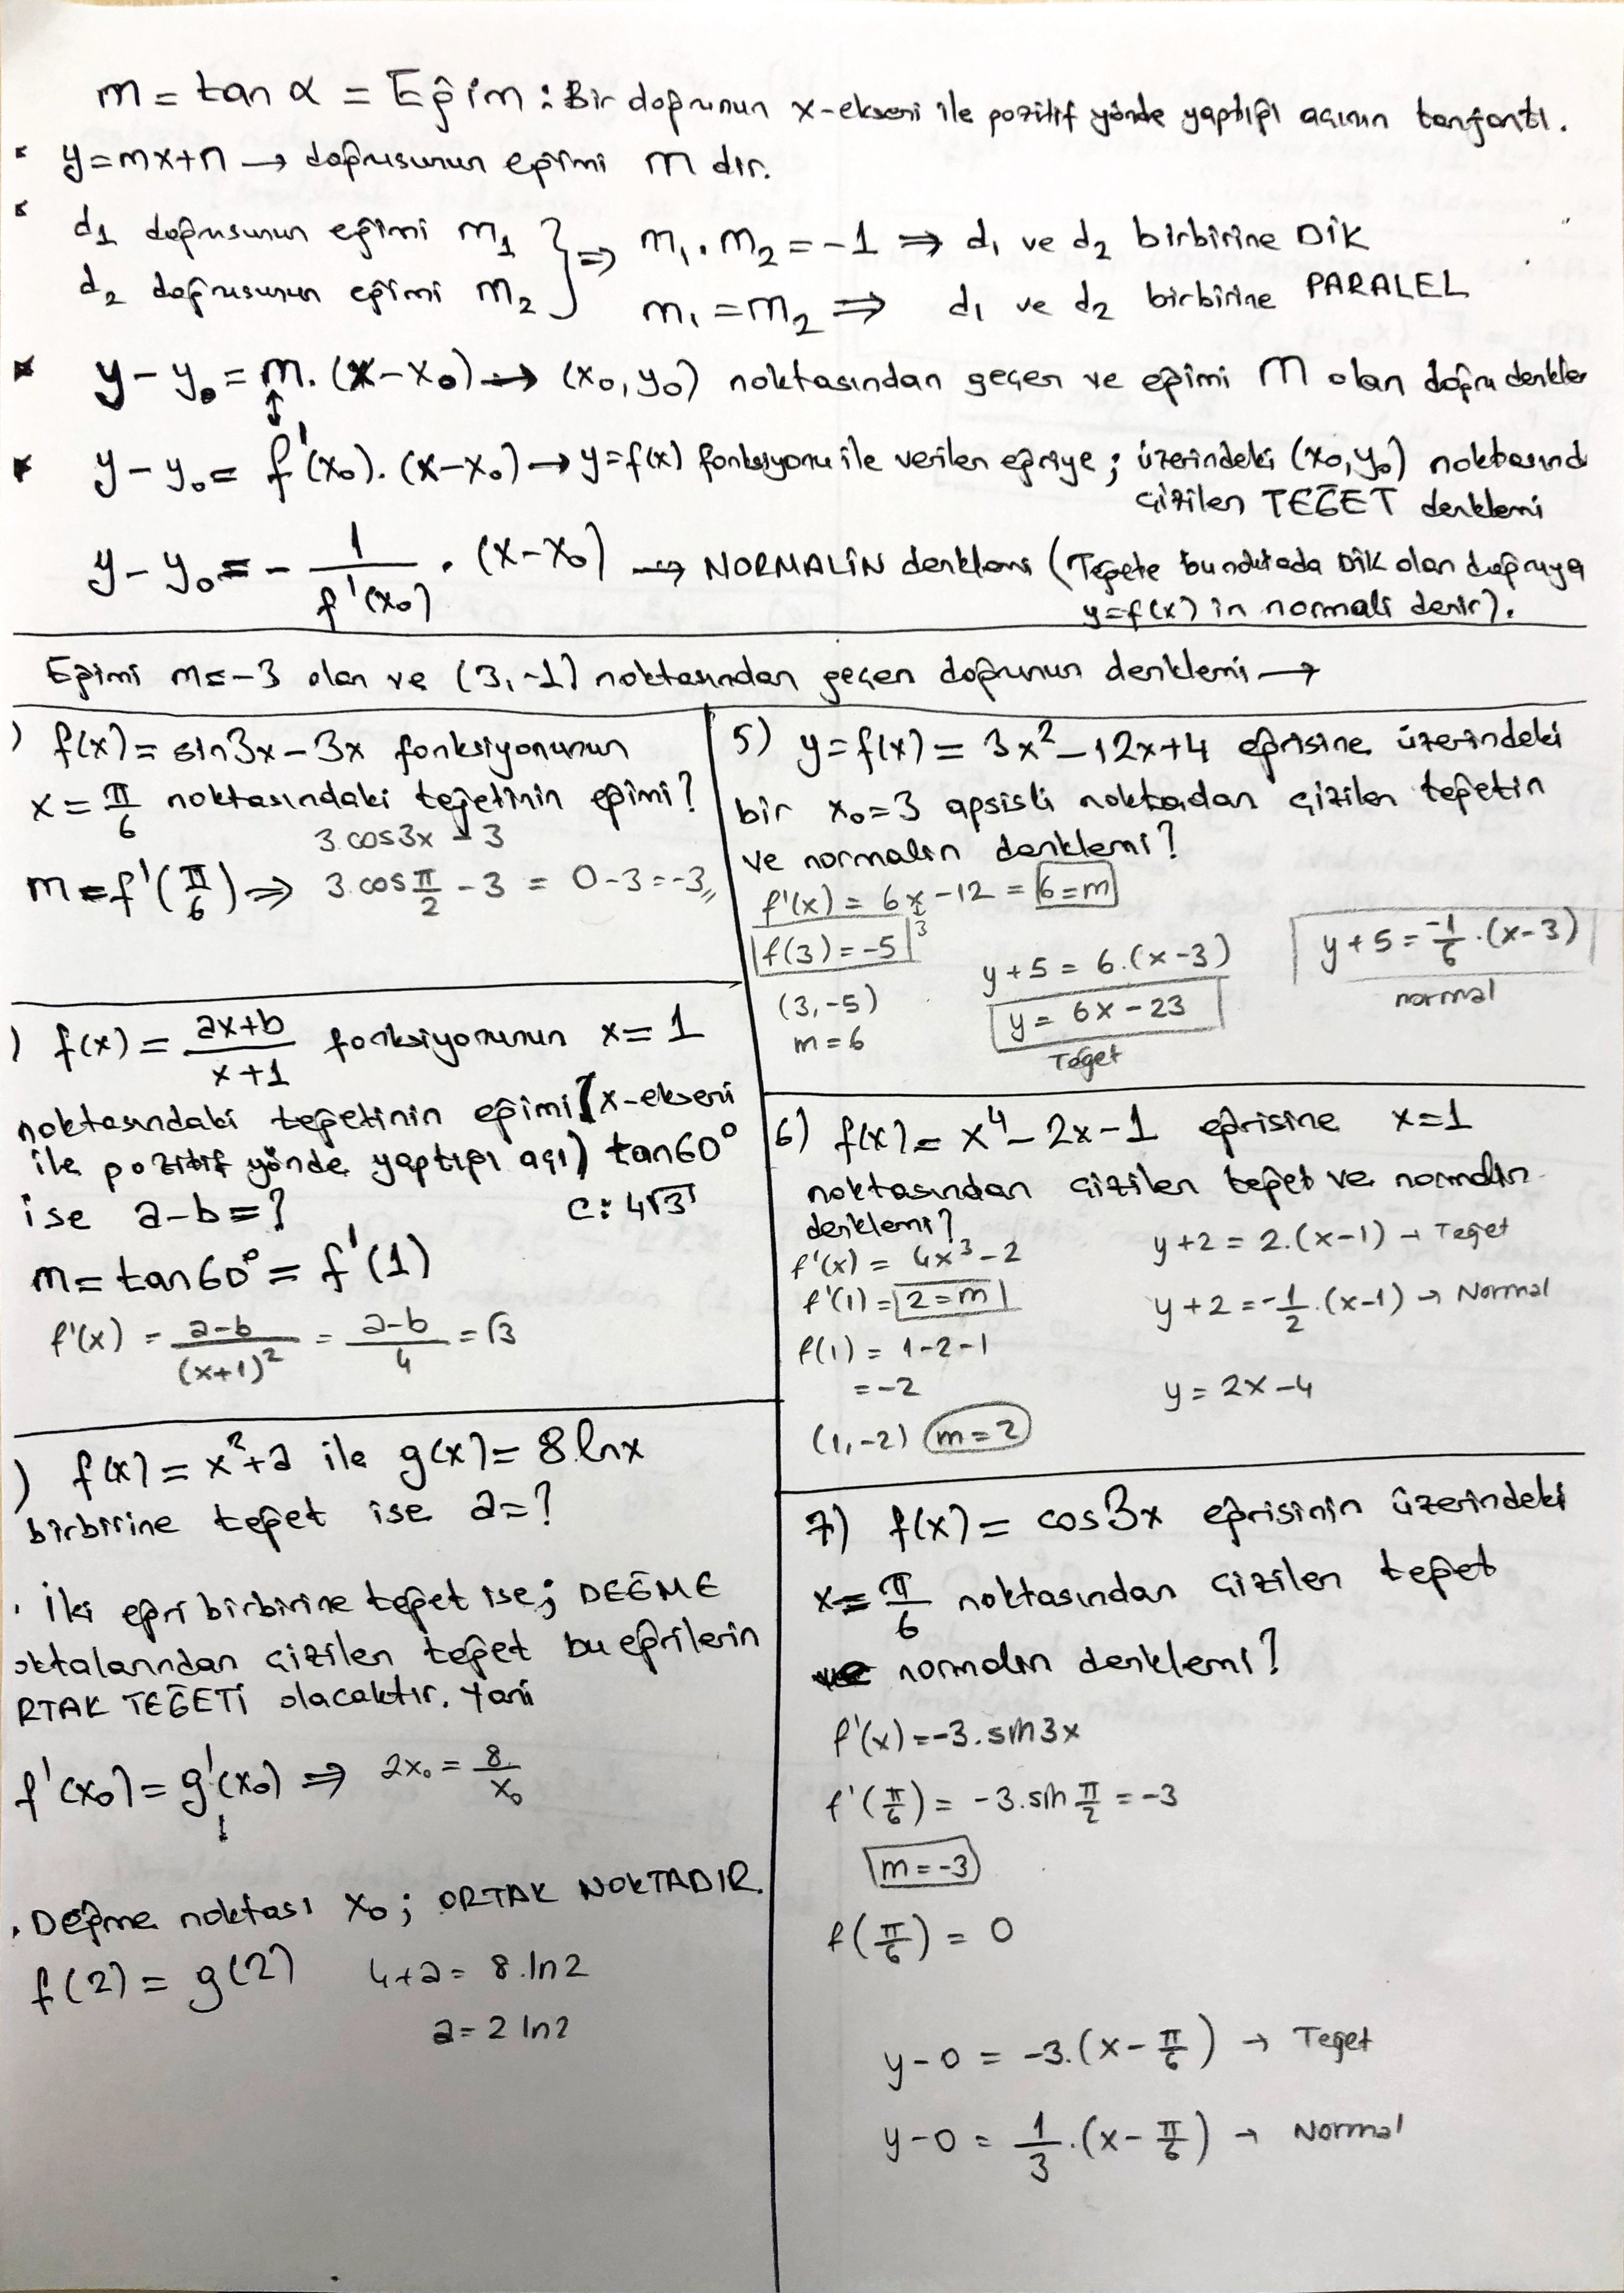 m = tan α = Eğim : Bir doğrunun x-ekseni ile pozitif yönde yaptığı açının tanjantı.
* y=mx+n → doğrusunun eğimi m dir.
* d1 doğrusunun eğimi m1 } ⇒ m1 . m2 = -1 ⇒ d1 ve d2 birbirine DİK
d2 doğrusunun eğimi m2 m1 = m2 ⇒ d1 ve d2 birbirine PARALEL
* y - y0 = m. (x-x0) → (x0, y0) noktasından geçen ve eğimi m olan doğru denkle
* y - y0 = f'(x0). (x-x0) → y=f(x) fonksiyonu ile verilen eğriye; üzerindeki (x0,y0) noktasınd
çizilen TEĞET denklemi
y - y0 = - 1/f'(x0) . (x-x0) → NORMALİN denklemi (Teğete bu noktada DİK olan doğruya
y=f(x) in normali denir).
Eğimi m=-3 olan ve (3,-1) noktasından geçen doğrunun denklemi →
) f(x) = sin3x - 3x fonksiyonunun
x = π/6 noktasındaki teğetinin eğimi?
3.cos3x - 3
m = f'(π/6) ⇒ 3.cos π/2 - 3 = 0-3 = -3,,
) f(x) = ax+b/x+1 fonksiyonunun x = 1
noktasındaki teğetinin eğimi (x-ekseni
ile pozitif yönde yaptığı açı) tan60°
ise a-b=? C: 4√3
m = tan60° = f'(1)
f'(x) = a-b/(x+1)² = a-b/4 = √3
) f(x) = x²+a ile g(x) = 8.lnx
birbirine teğet ise a=?
. İki eğri birbirine teğet ise; DEĞME
oktalarından çizilen teğet bu eğrilerin
RTAK TEĞETİ olacaktır. Yani
f'(x0) = g'(x0) ⇒ 2x0 = 8/x0
. Değme noktası x0 ; ORTAK NOKTADIR.
f(2) = g(2) 4+a = 8.ln2
a = 2 ln2
5) y=f(x) = 3x²-12x+4 eğrisine üzerindeki
bir x0=3 apsisli noktadan çizilen teğetin
ve normalin denklemi?
f'(x) = 6x-12 = 6=m
3
f(3) = -5
(3,-5)
m = 6
y+5 = 6.(x-3)
y = 6x-23
Teğet
y+5 = -1/6 .(x-3)
normal
6) f(x) = x⁴-2x-1 eğrisine x=1
noktasından çizilen teğet ve normalin
denklemi?
f'(x) = 4x³-2
f'(1) = 2=m
f(1) = 1-2-1
= -2
(1,-2) m=2
y+2 = 2.(x-1) → Teğet
y+2 = -1/2 .(x-1) → Normal
y = 2x-4
7) f(x) = cos3x eğrisinin üzerindeki
x = π/6 noktasından çizilen teğet
ve normalin denklemi?
f'(x) = -3.sin3x
f'(π/6) = -3.sin π/2 = -3
m=-3
f(π/6) = 0
y-0 = -3.(x-π/6) → Teğet
y-0 = 1/3 .(x-π/6) → Normal